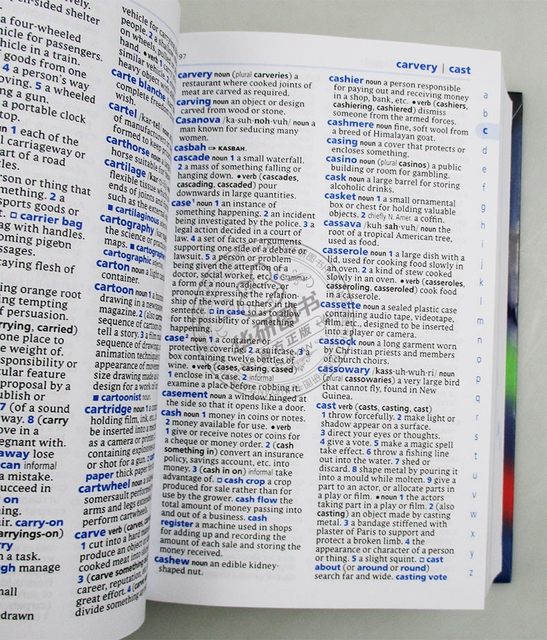 -sided shelter
a four-wheeled
vehicle for passengers.
vehicle in a train.
goods from one
4 a person's way
5 a wheeled
a gun.
a portable clock
top.
noun 1 each of the
carriageway or
art of a road
person or thing that
something. 2 a
sports goods or
carrier bag
bag with handles.
homing pigeon
messages.
decaying flesh of
orange root
tempting
of persuasion.
carrying, carried)
one place to
the weight of.
responsibility or
particular feature
proposal by a
publish or
7 (of a sound
away. 8 (carry
in a
pregnant with.
away lose
can informal
a mistake.
succeed in
on
carry-on
carryings-on)
carry
a task.
manage
drawn
vehicle for
people. 2
on wheels
hand. ● verb
similar
heavy object
carte blanche
complete freedom
wish.
cartel /kar-tel
of manufacturers
formed to
carthorse noun
horse suitable for
cartilage /kar
flexible tissue
ends of joints and
such as the external
■ cartilaginous
cartography
the science or practice
maps. ■ cartographer
cartographic
carton noun a light
container.
cartoon noun 1 a
drawing in a newspaper
magazine. 2 (also
sequence of cartoon
tell a story. 3 a film
sequence of
animation technique
appearance of movement
size drawing made as a
design for a work of
■ cartoonist noun
cartridge noun 1 a
holding film, ink, etc.
be inserted into
as a camera or printer
containing explosive
or shot for a gun.
paper thick paper for
cartwheel noun a
somersault performed
arms and legs extended
perform cartwheels.
carve verb (carves,
1 cut into a hard
produce an object
cooked meat into
3 (carve something
career, reputation,
great effort. 4 (carve
divide something up
97
carvery | cast
carvery noun (plural carveries) a
restaurant where cooked joints of
meat are carved as required.
carving noun an object or design
carved from wood or stone.
Casanova /ka-suh-noh-vuh/ noun a
man known for seducing many
women.
casbah ⇨ KASBAH.
cascade noun 1 a small waterfall.
2 a mass of something falling or
hanging down. ● verb (cascades,
cascading, cascaded) pour
downwards in large quantities.
case¹ noun 1 an instance of
something happening. 2 an incident
being investigated by the police. 3 a
legal action decided in a court of
law. 4 a set of facts or arguments
supporting one side of a debate or
lawsuit. 5 a person or problem
being given the attention of a
doctor, social worker, etc. 6 Grammar
a form of a noun, adjective, or
pronoun expressing the relation-
ship of the word to others in the
sentence. □ in case
for the possibility of something
happening.
case² noun 1 a container or
protective covering. 2 a suitcase. 3 a
box containing twelve bottles of
wine. ● verb (cases, casing, cased)
1 enclose in a case. 2 informal
examine a place before robbing it.
casement noun a window hinged at
the side so that it opens like a door.
cash noun 1 money in coins or notes.
2 money available for use. ● verb
1 give or receive notes or coins for
a cheque or money order. 2 (cash
something in) convert an insurance
policy, savings account, etc. into
money. 3 (cash in on) informal take
advantage of. □ cash crop a crop
produced for sale rather than for
use by the grower. cash flow the
total amount of money passing into
and out of a business. cash
register a machine used in shops
for adding up and recording the
amount of each sale and storing the
money received.
cashew noun an edible kidney-
shaped nut.
cashier noun a person responsible
for paying out and receiving money
in a shop, bank, etc. ● verb (cashiers,
cashiering, cashiered) dismiss
someone from the armed forces.
cashmere noun fine, soft wool from
a breed of Himalayan goat.
casing noun a cover that protects or
encloses something.
casino noun (plural casinos) a public
building or room for gambling.
cask noun a large barrel for storing
alcoholic drinks.
casket noun 1 a small ornamental
box or chest for holding valuable
objects. 2 chiefly N. Amer. a coffin.
cassava /kuh-sah-vuh/ noun the
root of a tropical American tree,
used as food.
casserole noun 1 a large dish with a
lid, used for cooking food slowly in
an oven. 2 a kind of stew cooked
slowly in an oven. ● verb (casseroles,
casseroling, casseroled) cook food
in a casserole.
cassette noun a sealed plastic case
containing audio tape, videotape,
film, etc., designed to be inserted
into a player or camera.
cassock noun a long garment worn
by Christian priests and members
of church choirs.
cassowary /kass-uh-wuh-ri/ noun
(plural cassowaries) a very large bird
that cannot fly, found in New
Guinea.
cast verb (casts, casting, cast)
1 throw forcefully. 2 make light or
shadow appear on a surface.
3 direct your eyes or thoughts.
4 give a vote. 5 make a magic spell
take effect. 6 throw a fishing line
out into the water. 7 shed or
discard. 8 shape metal by pouring it
into a mould while molten. 9 give a
part to an actor, or allocate parts in
a play or film. ● noun 1 the actors
taking part in a play or film. 2 (also
casting) an object made by casting
metal. 3 a bandage stiffened with
plaster of Paris to support and
protect a broken limb. 4 the
appearance or character of a person
or thing. 5 a slight squint. □ cast
about (or around or round)
search far and wide. casting vote
a
b
c
d
e
f
g
h
i
j
k
l
m
n
o
p
q
r
s
t
u
v
w
x
y
z